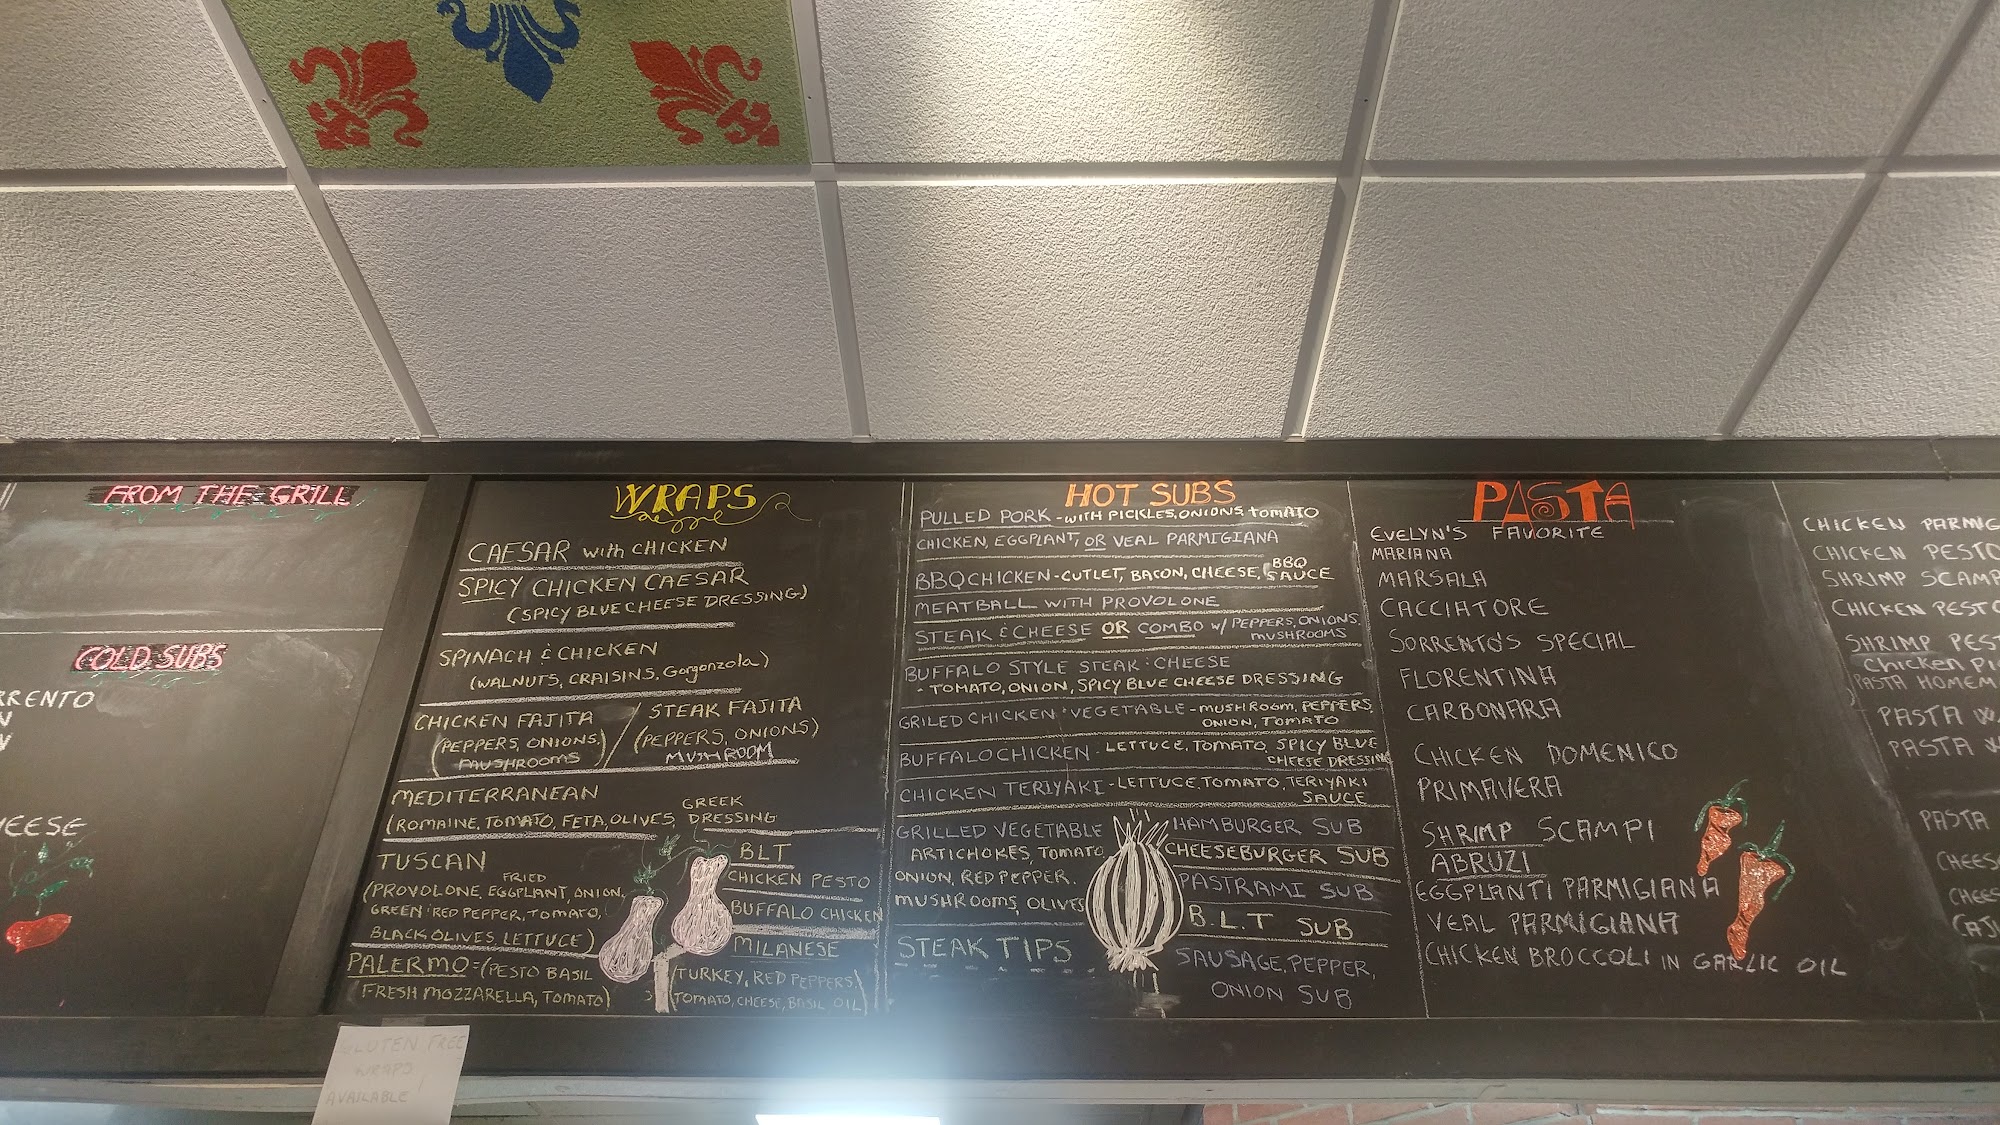 FROM THE GRILL
COLD SUBS
RRENTO
N
EESE
WRAPS
CAESAR with CHICKEN
SPICY CHICKEN CAESAR
(SPICY BLUE CHEESE DRESSING)
SPINACH & CHICKEN
(WALNUTS, CRAISINS, Gorgonzola)
CHICKEN FAJITA / STEAK FAJITA
(PEPPERS, ONIONS, (PEPPERS, ONIONS)
MUSHROOMS MUSHROOM
MEDITERRANEAN
(ROMAINE, TOMATO, FETA, OLIVES, GREEK DRESSING
TUSCAN
(PROVOLONE, FRIED EGGPLANT, ONION,
GREEN : RED PEPPER, TOMATO,
BLACK OLIVES LETTUCE)
PALERMO = (PESTO BASIL
FRESH MOZZARELLA, TOMATO)
BLT
CHICKEN PESTO
BUFFALO CHICKEN
MILANESE
(TURKEY, RED PEPPERS,
TOMATO, CHEESE, BASIL OIL)
GLUTEN FREE
WRAPS
AVAILABLE!
HOT SUBS
PULLED PORK - WITH PICKLES, ONIONS, TOMATO
CHICKEN, EGGPLANT, OR VEAL PARMIGIANA
BBQ CHICKEN - CUTLET, BACON, CHEESE, BBQ SAUCE
MEATBALL WITH PROVOLONE
STEAK & CHEESE OR COMBO W/ PEPPERS, ONIONS,
MUSHROOMS
BUFFALO STYLE STEAK : CHEESE
- TOMATO, ONION, SPICY BLUE CHEESE DRESSING
GRILED CHICKEN : VEGETABLE - MUSHROOM, PEPPERS,
ONION, TOMATO
BUFFALO CHICKEN - LETTUCE, TOMATO, SPICY BLUE
CHEESE DRESSING
CHICKEN TERIYAKI - LETTUCE, TOMATO, TERIYAKI
SAUCE
GRILLED VEGETABLE
ARTICHOKES, TOMATO,
ONION, RED PEPPER.
MUSHROOMS, OLIVES
STEAK TIPS
HAMBURGER SUB
CHEESEBURGER SUB
PASTRAMI SUB
B.L.T SUB
SAUSAGE, PEPPER,
ONION SUB
PASTA
EVELYN'S FAVORITE
MARIANA
MARSALA
CACCIATORE
SORRENTO'S SPECIAL
FLORENTINA
CARBONARA
CHICKEN DOMENICO
PRIMAVERA
SHRIMP SCAMPI
ABRUZI
EGGPLANTI PARMIGIANA
VEAL PARMIGIANA
CHICKEN BROCCOLI IN GARLIC OIL
CHICKEN PARMIG
CHICKEN PESTO
SHRIMP SCAMP
CHICKEN PESTO
SHRIMP PEST
Chicken Pi
PASTA HOMEM
PASTA W
PASTA W
PASTA
CHEES
CHEES
CAJ